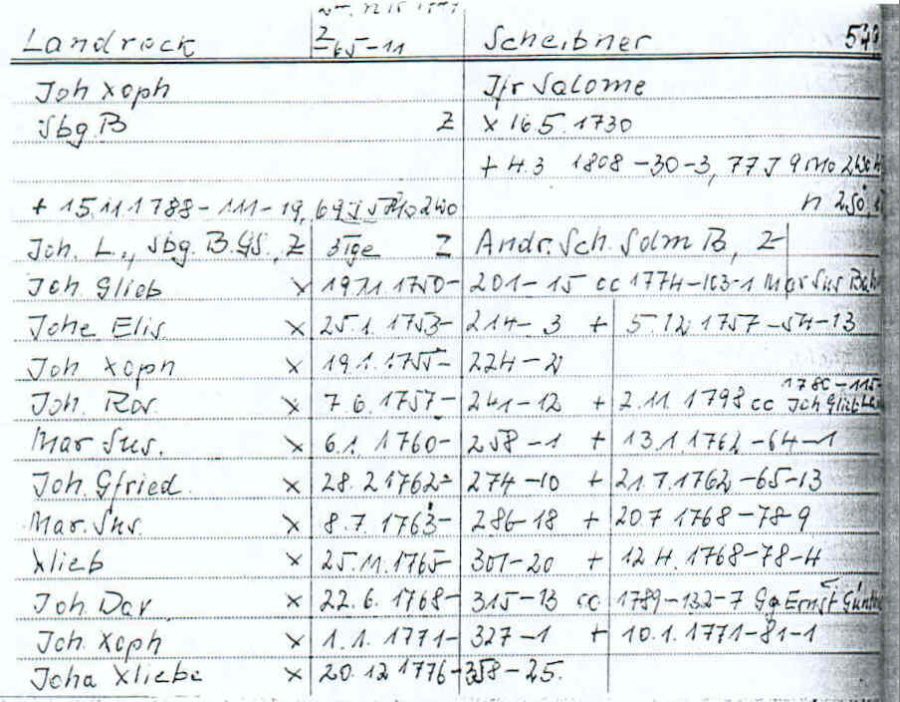 Landrock Z 65-11 Scheibner
Joh Xoph Jfr Salome
Sbg. B Z x 16.5.1730
+ 4.3 1808 -30-3, 77 J 9 Mo
+ 15.11.1788-111-19, 69 J
Joh. L., Sbg. B. GS., Z 3 Tge Z Andr. Sch. Solm B, Z
Joh Glieb x 19.11.1750- 201-15 cc 1774-103-1 Mar Sus
Johe Elis. x 25.1.1753- 214-3 + 5.12.1757-54-13
Joh Xoph x 19.1.1755- 224-2
1780-115-
Joh. Ros. x 7.6.1757- 241-12 + 2.11.1798 cc Joh
Mar Sus. x 6.1.1760- 258-1 + 13.1.1762-64-1
Joh. Gfried x 28.2 1762- 274-10 + 21.7.1762-65-13
Mar. Sus. x 8.7.1763- 286-18 + 20.7 1768-78-9
Xlieb x 25.11.1765- 301-20 + 12.4.1768-78-4
Joh. Dor x 22.6.1768- 315-13 cc 1789-132-7 Gg Ernst
Joh. Xoph x 1.1.1771- 327-1 + 10.1.1771-81-1
Joha Xliebe x 20.12 1776-358-25.